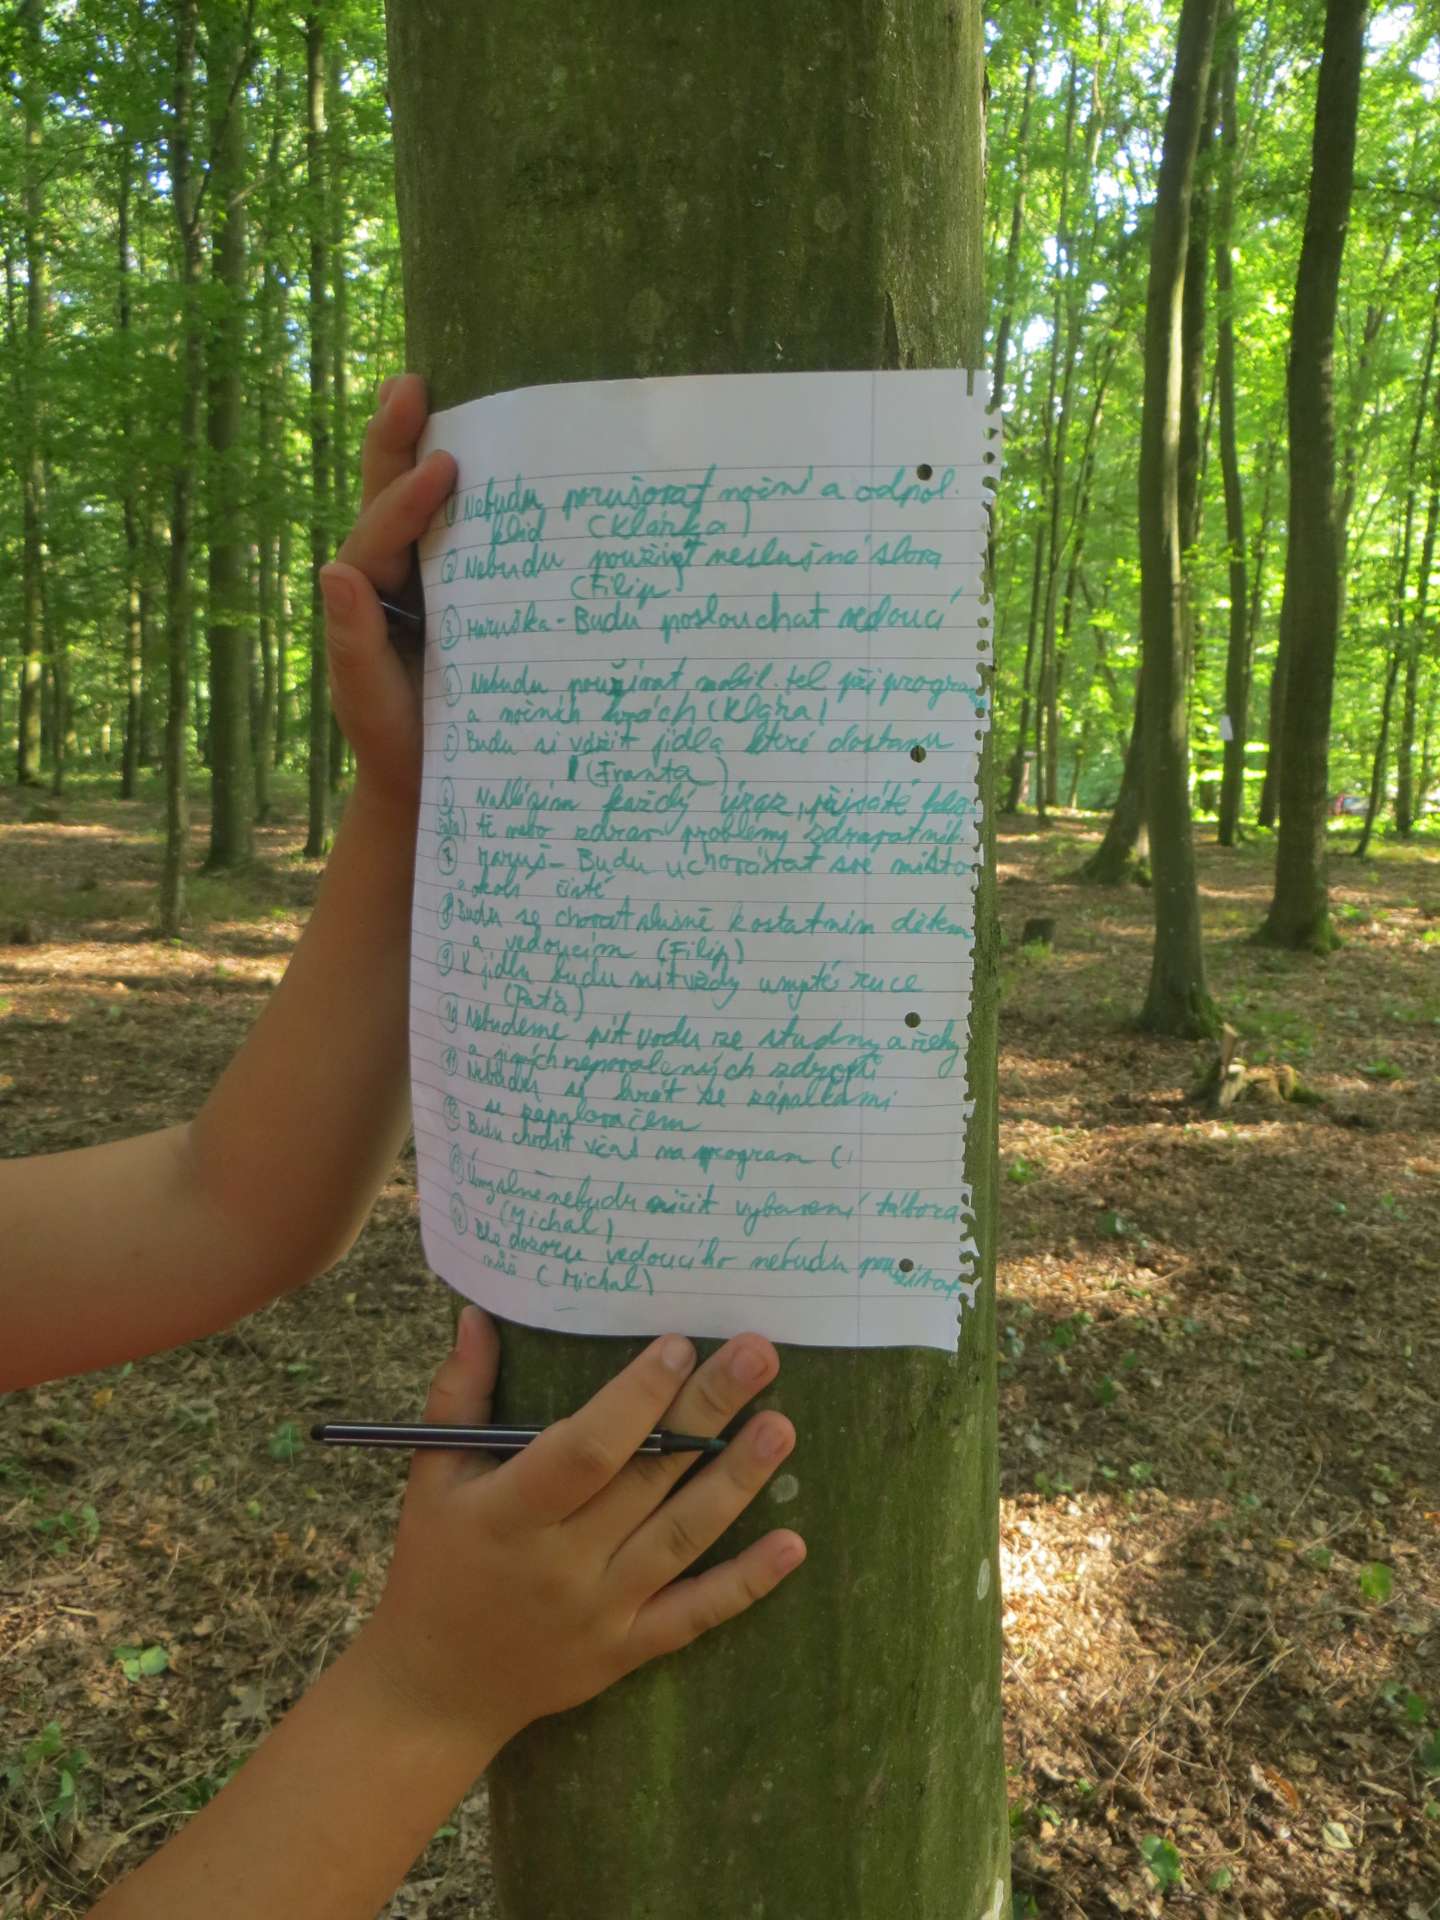 1 Nebudu porušovat noční a odpol.
klid (Klárka)
2 Nebudu používat neslušná slova
(Filip)
3 Maruška - Budu poslouchat vedoucí
4 Nebudu používat mobil. tel při program
a nočních hrách (Klára)
5 Budu si vážit jídla které dostanu
(Franta)
6 Nahlásím každý úraz, přisáté klíš
tě nebo zdrav problémy zdravotník.
7 Maruš - Budu uchovávat své místo
a okolí čisté
8 Budu se chovat slušně k ostatním dětem
a vedoucím (Filip)
9 K jídlu budu mít vždy umyté ruce
(Paťa)
10 Nebudeme pít vodu ze studny a řeky
a jiných neprovařených zdrojů
11 Nebudu si hrát se zápalkami
se zapalovačem
12 Budu chodit včas na program (
13 Úmyslně nebudu ničit vybavení tábora
(Michal)
14 Bez dozoru vedoucího nebudu používat
nůž (Michal)